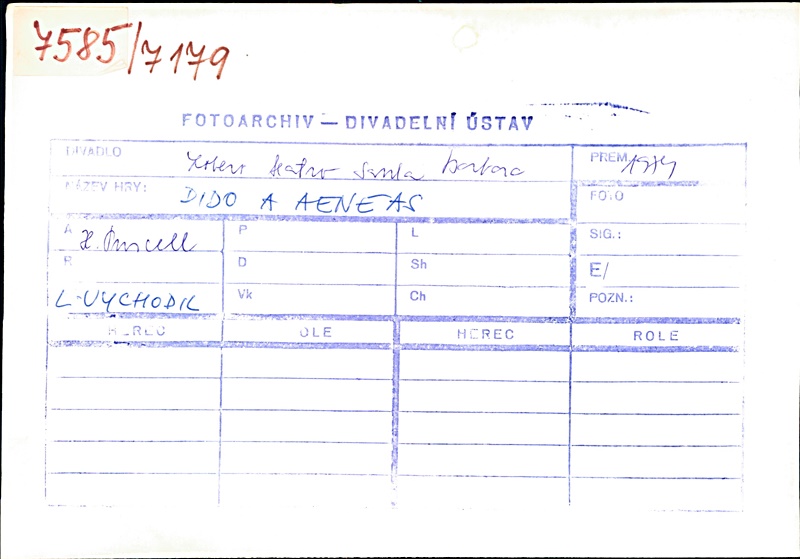 7585/7179
FOTOARCHIV — DIVADELNÍ ÚSTAV
DIVADLO teatro Santa Barbara PREM. 1974
NÁZEV HRY: DIDO A AENEAS FOTO
A H. Purcell P L SIG.:
R D Sh E/
L-VYCHODIL Vk Ch POZN.:
HEREC ROLE HEREC ROLE